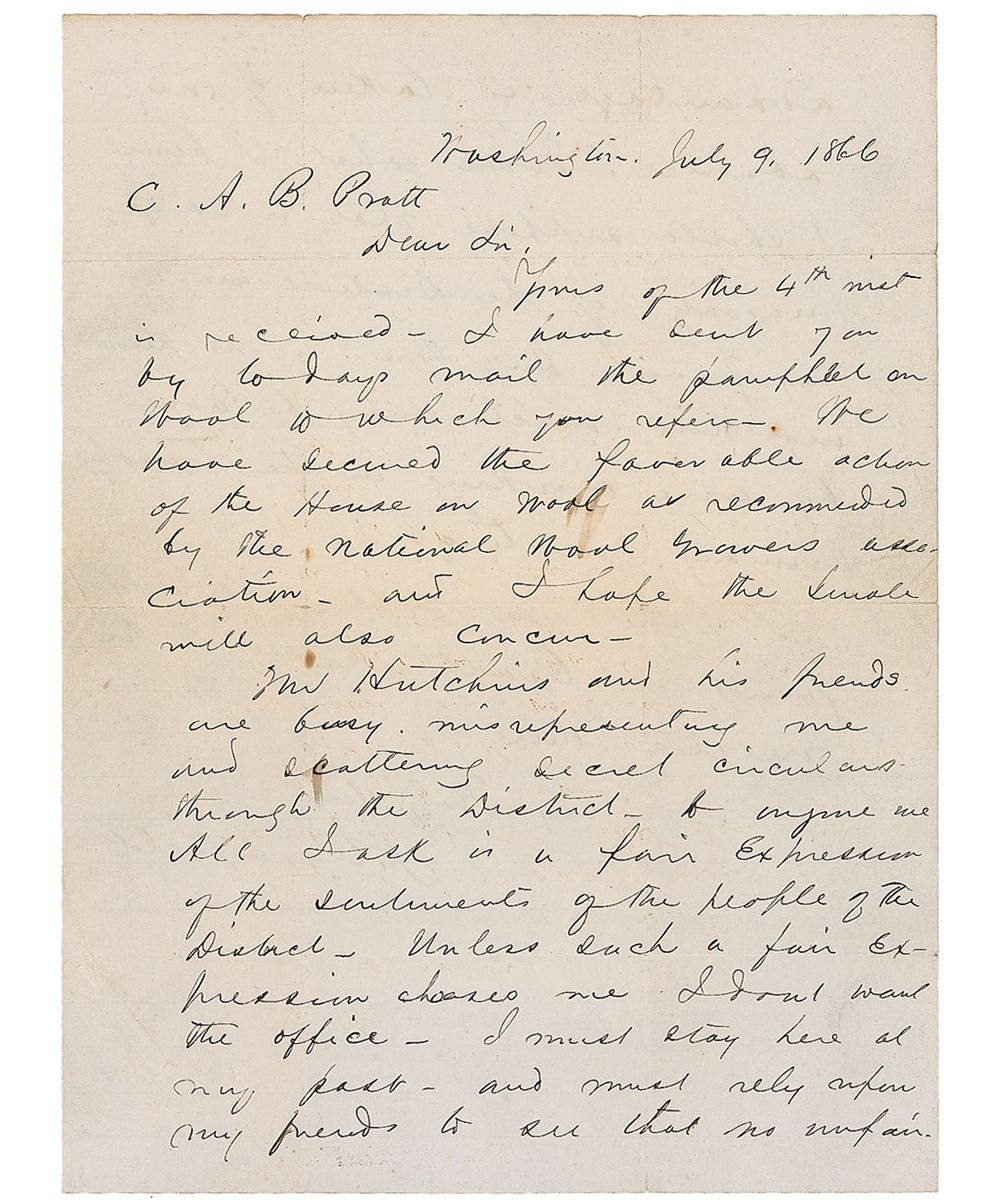 Washington. July 9. 1866
C. A. B. Pratt
Dear Sir.
Yours of the 4th inst
is received – I have sent you
by todays mail the pamphlet on
Wool to which you refer –. We
have secured the favorable action
of the House on wool as recommended
by the National Wool Growers asso-
ciation – and I hope the Senate
will also concur –
Mr Hutchins and his friends.
are busy. misrepresenting me
and scattering secret circulars
through the District – to injure me
All I ask is a fair Expression
of the sentiments of the people of the
District – Unless such a fair Ex-
pression chooses me I dont want
the office – I must stay here at
my post – and must rely upon
my friends to see that no unfair